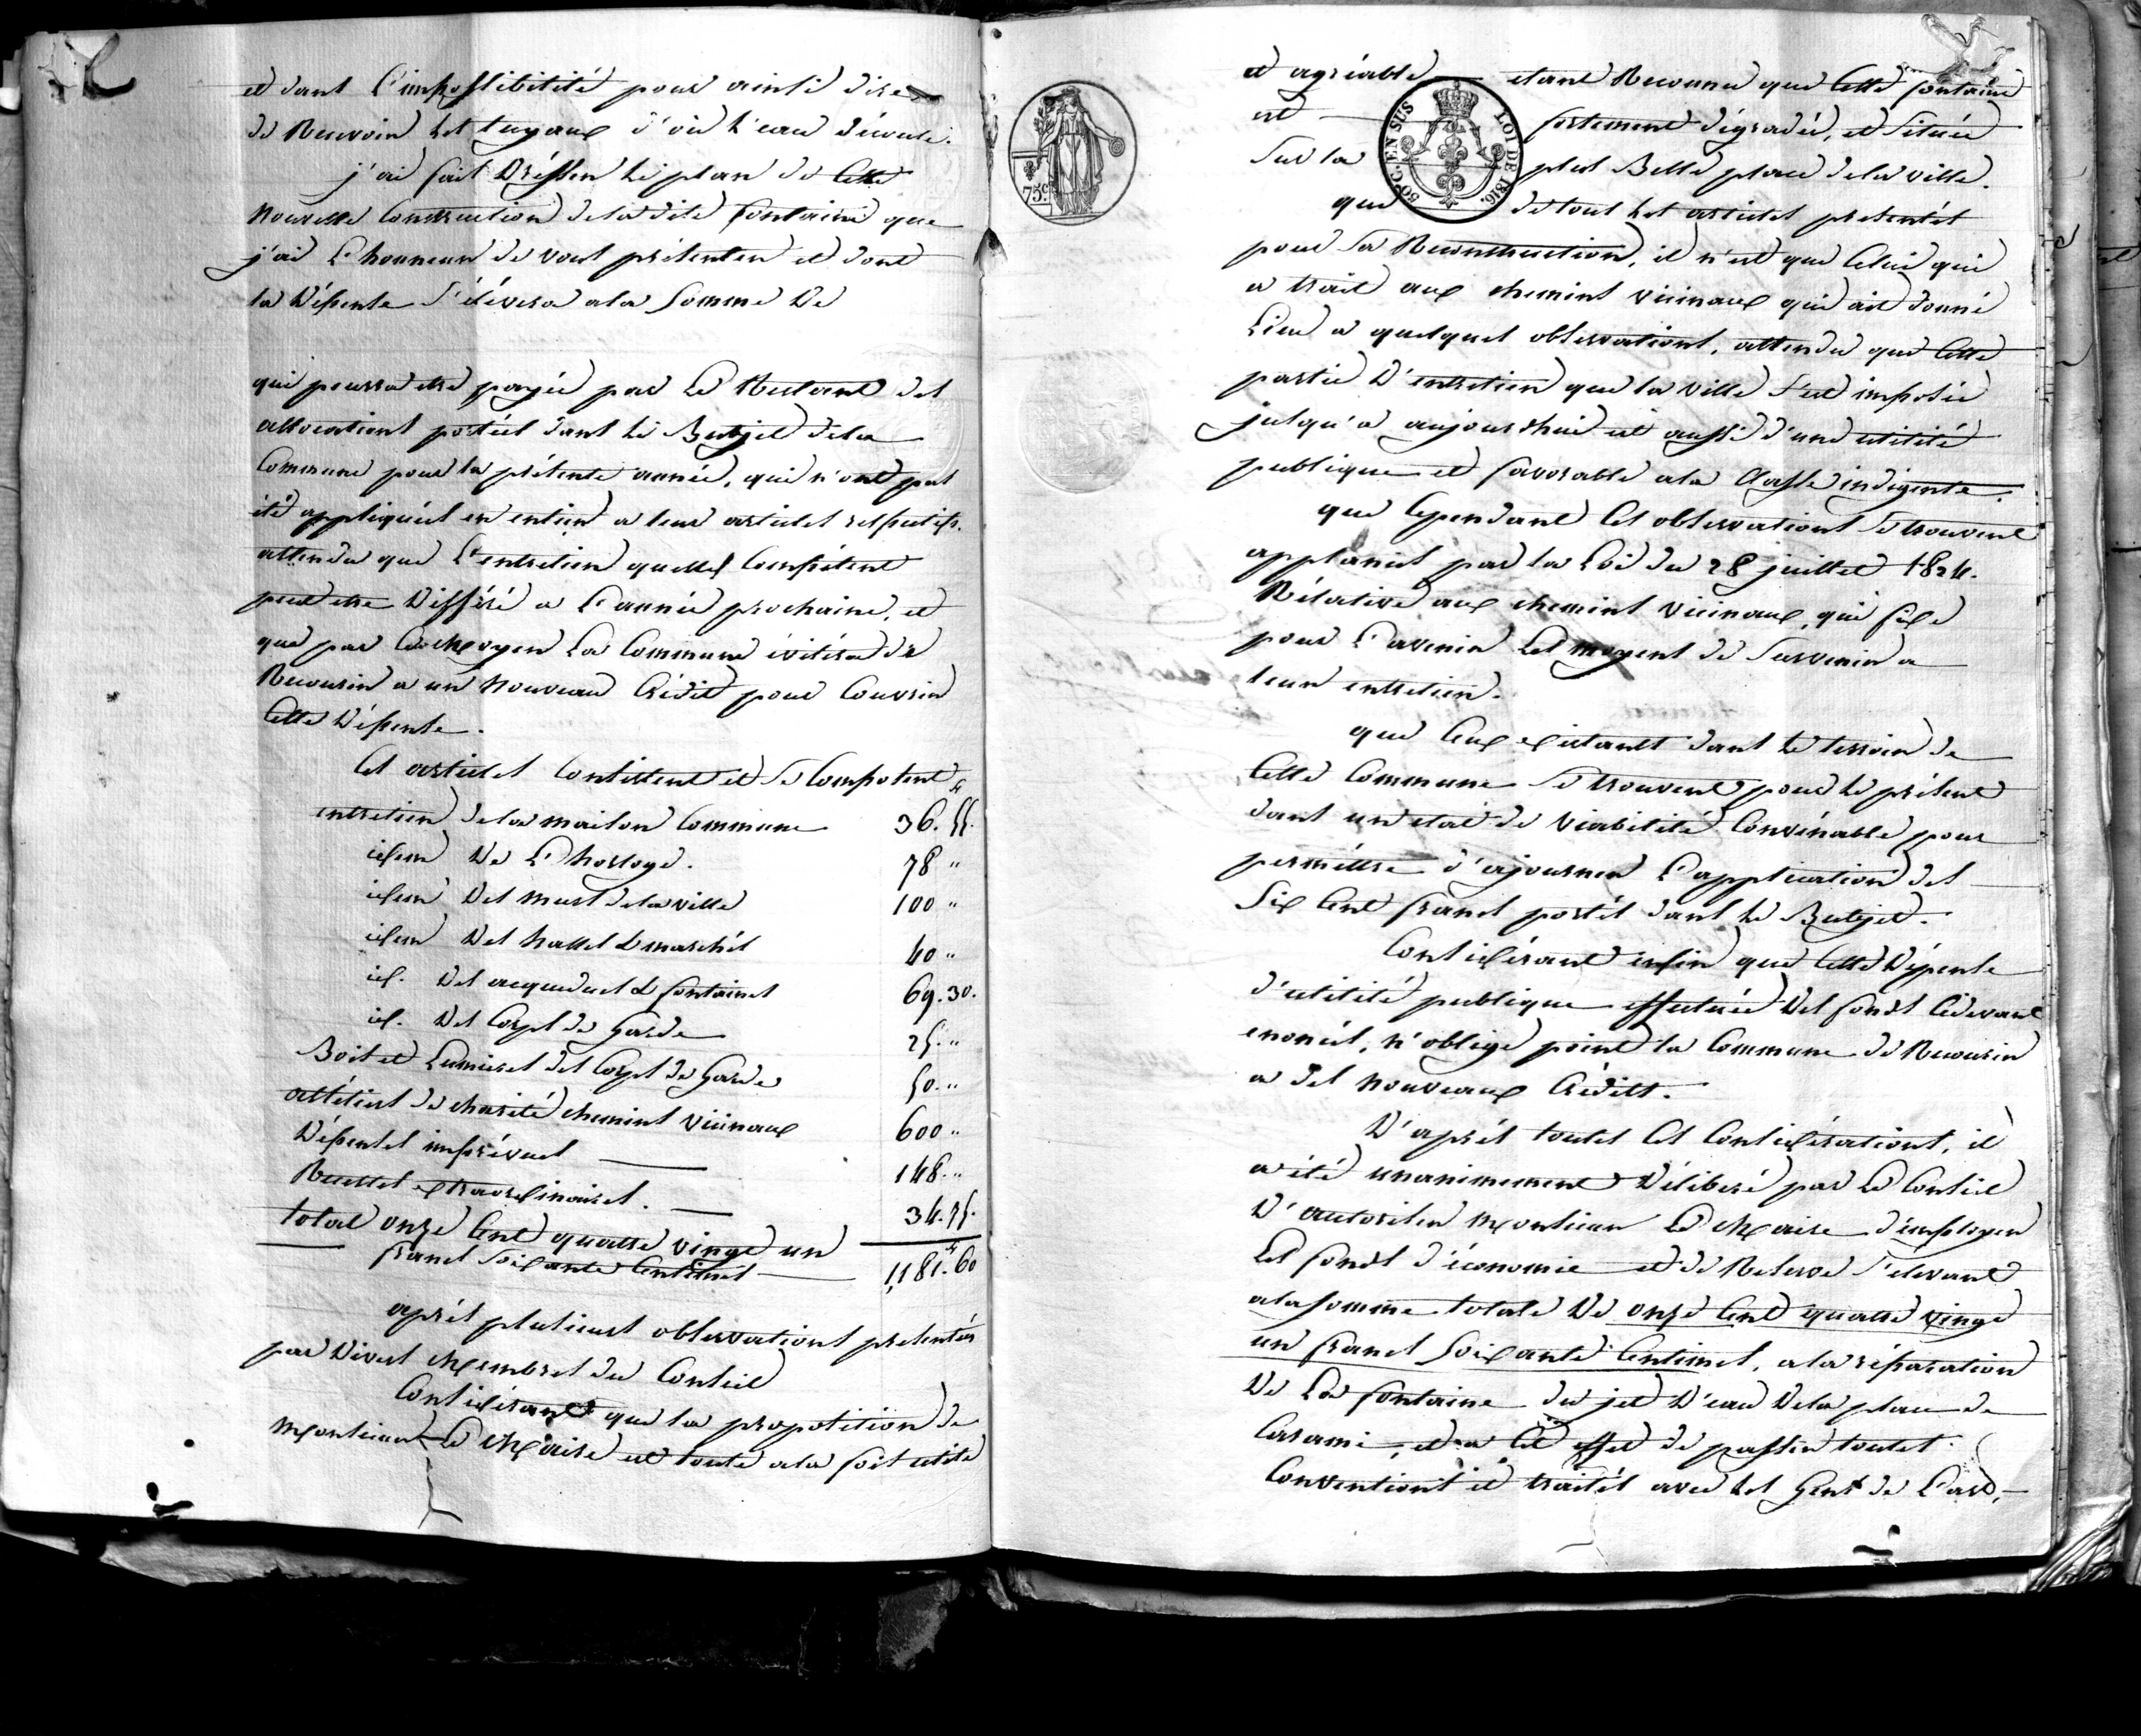 et dans l'impossibilité pour ainsi dire
de Recevoir les tuyaux d'où l'eau découle.
j'ai fait Drésser le plan de Cette
Nouvelle Construction de la dite fontaine que
j'ai l'honneur de vous présenter et dont
la Dépense s'élevera a la Somme De
qui pourra etre payée par Le Restant des
allocations portées dans le Budjet de la
Commune pour la présente année, qui n'ont pas
été appliquées en entier a leurs articles respectifs.
attendu que L'entretien quelles Compétent
peut etre Différé a L'année prochaine, et
que par Ce Moyen La Commune évitéra de
Recourir a un Nouveau Crédit pour Couvrir
Cette Dépense.
Ces articles Consistent et se Composent
entretien de la maison Commune 36.55.
idem De L'horloge. 78 "
idem Des murs de la ville 100 "
idem Des halles & marchés 40 "
id. Des acqueducs & fontaines 69.30.
id. Des Corps de Garde 25. "
Bois et Lumieres des Corps de Garde 50. "
attéliers de charité chemins vicinaux 600 "
Dépenses imprévues 148. "
Recettes extraordinaires. 34.75.
total onze Cent quatre vingt un
francs Soixante Centimes 1,181.f60
aprés plusieurs observations presentées
par Divers Membres du Conseil
Considérant que la proposition de
Monsieur Le Maire est toute a la fois utile
75.c
et agréable etant Reconnu que Cette fontaine
est fortement dégradée, et Située
Sur la plus Belle place de la ville.
50 C. EN SUS LOI DE 1816.
que de tous les articles presentés
pour Sa Reconstruction, il n'est que Celui qui
a trait aux chemins vicinaux qui ait donné
Lieu a quelques observations, attendu que Cette
partie D'entretien que la Ville s'est imposée
jusqu'a aujourdhui est aussi d'une utilité
publique et favorable a la Classe indigente.
que Cependant Ces observations Se trouvent
applanies par la Loi du 28 juillet 1824.
Rélative aux chemins vicinaux, qui fixe
pour L'avenir Les moyens de Survenir a
leur entretien.
que Ceux existants dans le terroir de
Cette Commune Se trouvent pour le présent
dans un etat de viabilité Convénable pour
permettre d'ajourner L'application des
Six Cent francs portés dans le Budjet.
Considérant enfin que Cette Dépense
d'utilité publique effectuée Des fonds Cidevant
enoncés, n'oblige point la Commune de Recourir
a des Nouveaux Crédits.
D'aprés toutes Ces Considérations, il
a été unanimement Délibéré par Le Conseil
D'autoriser Monsieur Le Maire d'employer
Les fonds d'économie et de Reserve S'elevant
a la somme totale De onze Cent quatre vingt
un francs Soixante Centimes, a la réparation
De La fontaine du jet D'eau De la place de
Carami, et a Cet effet de passer toutes
Conventions et traités avec les Gens de L'art,